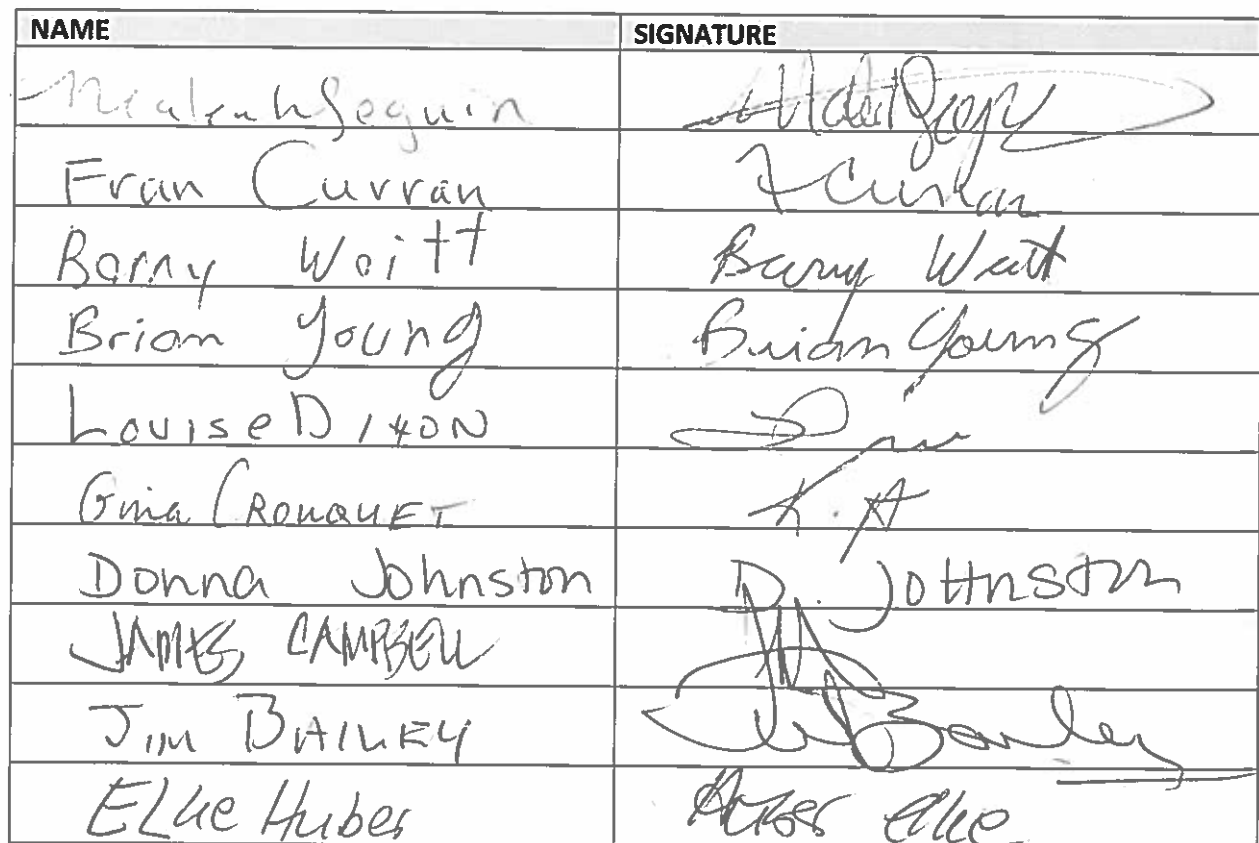 NAME SIGNATURE
Seguin
Fran Curran F Curran
Barry Waitt Barry Watt
Brian Young Brian Young
Louise Dixon
Gina CROUQUET
Donna Johnston D. JOHNSTON
JAMES CAMPBELL
JIM BAILEY Jim Bailey
Elke Huber Huber Elke